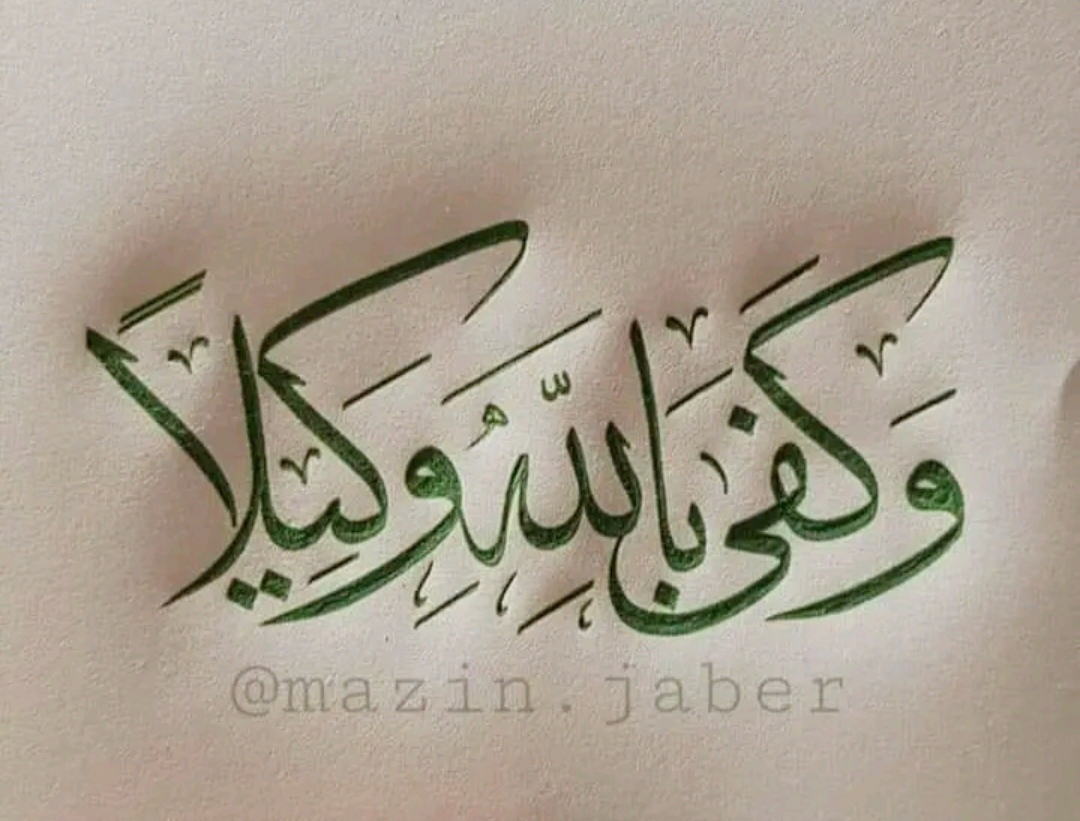 وَكَفَى بَاللَّهِ وَكِيلاً
@mazin.jaber